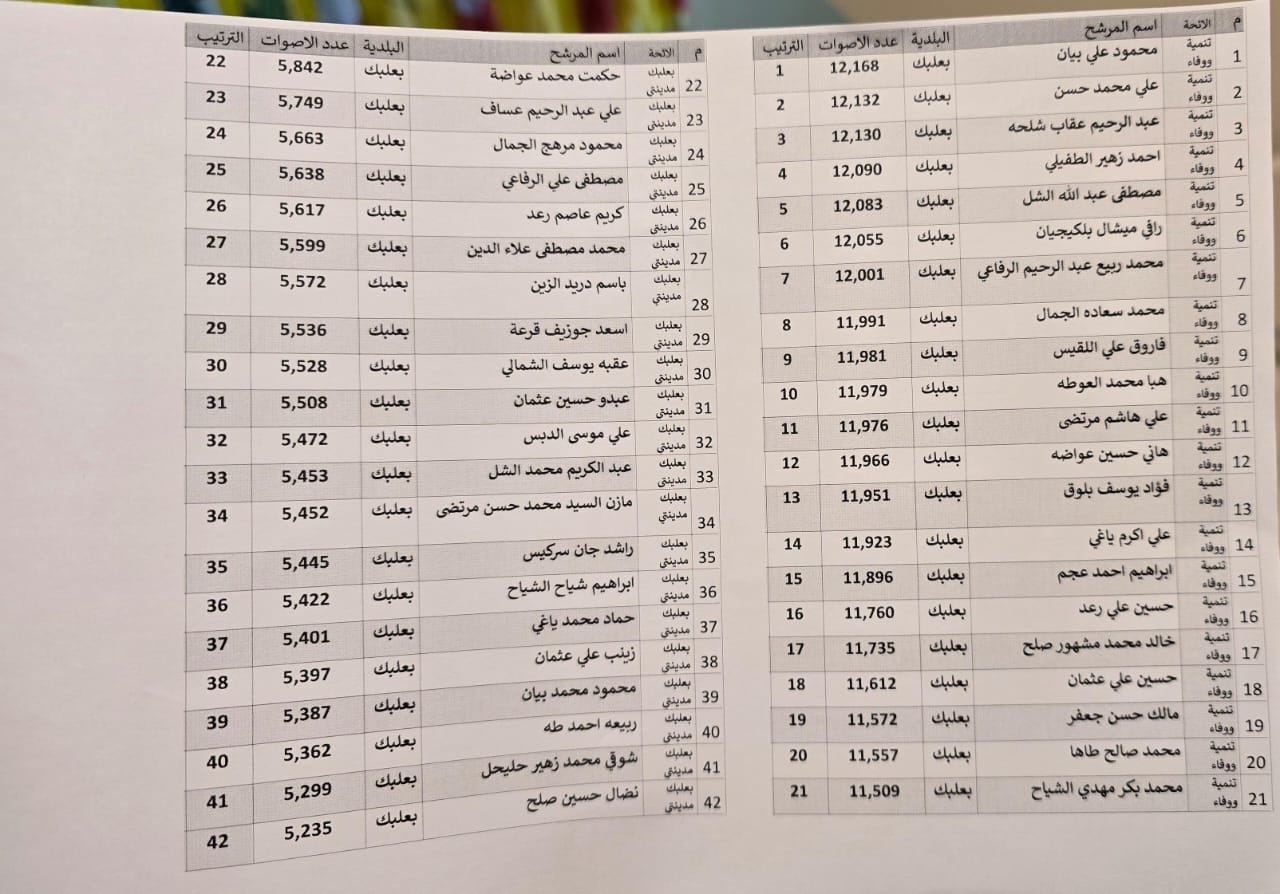 م الائحة اسم المرشح البلدية عدد الاصوات الترتيب
1 تنمية ووفاء محمود علي بيان بعلبك 12,168 1
2 تنمية ووفاء علي محمد حسن بعلبك 12,132 2
3 تنمية ووفاء عبد الرحيم عقاب شلحه بعلبك 12,130 3
4 تنمية ووفاء احمد زهير الطفيلي بعلبك 12,090 4
5 تنمية ووفاء مصطفى عبد الله الشل بعلبك 12,083 5
6 تنمية ووفاء رافي ميشال بلكيجيان بعلبك 12,055 6
7 تنمية ووفاء محمد ربيع عبد الرحيم الرفاعي بعلبك 12,001 7
8 تنمية ووفاء محمد سعاده الجمال بعلبك 11,991 8
9 تنمية ووفاء فاروق علي اللقيس بعلبك 11,981 9
10 تنمية ووفاء هبا محمد العوطه بعلبك 11,979 10
11 تنمية ووفاء علي هاشم مرتضى بعلبك 11,976 11
12 تنمية ووفاء هاني حسين عواضه بعلبك 11,966 12
13 تنمية ووفاء فؤاد يوسف بلوق بعلبك 11,951 13
14 تنمية ووفاء علي اكرم ياغي بعلبك 11,923 14
15 تنمية ووفاء ابراهيم احمد عجم بعلبك 11,896 15
16 تنمية ووفاء حسين علي رعد بعلبك 11,760 16
17 تنمية ووفاء خالد محمد مشهور صلح بعلبك 11,735 17
18 تنمية ووفاء حسين علي عثمان بعلبك 11,612 18
19 تنمية ووفاء مالك حسن جعفر بعلبك 11,572 19
20 تنمية ووفاء محمد صالح طاها بعلبك 11,557 20
21 تنمية ووفاء محمد بكر مهدي الشياح بعلبك 11,509 21
م الائحة اسم المرشح البلدية عدد الاصوات الترتيب
22 بعلبك مدينتي حكمت محمد عواضة بعلبك 5,842 22
23 بعلبك مدينتي علي عبد الرحيم عساف بعلبك 5,749 23
24 بعلبك مدينتي محمود مرهج الجمال بعلبك 5,663 24
25 بعلبك مدينتي مصطفى علي الرفاعي بعلبك 5,638 25
26 بعلبك مدينتي كريم عاصم رعد بعلبك 5,617 26
27 بعلبك مدينتي محمد مصطفى علاء الدين بعلبك 5,599 27
28 بعلبك مدينتي باسم دريد الزين بعلبك 5,572 28
29 بعلبك مدينتي اسعد جوزيف قرعة بعلبك 5,536 29
30 بعلبك مدينتي عقبه يوسف الشمالي بعلبك 5,528 30
31 بعلبك مدينتي عبدو حسين عثمان بعلبك 5,508 31
32 بعلبك مدينتي علي موسى الدبس بعلبك 5,472 32
33 بعلبك مدينتي عبد الكريم محمد الشل بعلبك 5,453 33
34 بعلبك مدينتي مازن السيد محمد حسن مرتضى بعلبك 5,452 34
35 بعلبك مدينتي راشد جان سركيس بعلبك 5,445 35
36 بعلبك مدينتي ابراهيم شياح الشياح بعلبك 5,422 36
37 بعلبك مدينتي حماد محمد ياغي بعلبك 5,401 37
38 بعلبك مدينتي زينب علي عثمان بعلبك 5,397 38
39 بعلبك مدينتي محمود محمد بيان بعلبك 5,387 39
40 بعلبك مدينتي ربيعه احمد طه بعلبك 5,362 40
41 بعلبك مدينتي شوقي محمد زهير حليحل بعلبك 5,299 41
42 بعلبك مدينتي نضال حسين صلح بعلبك 5,235 42